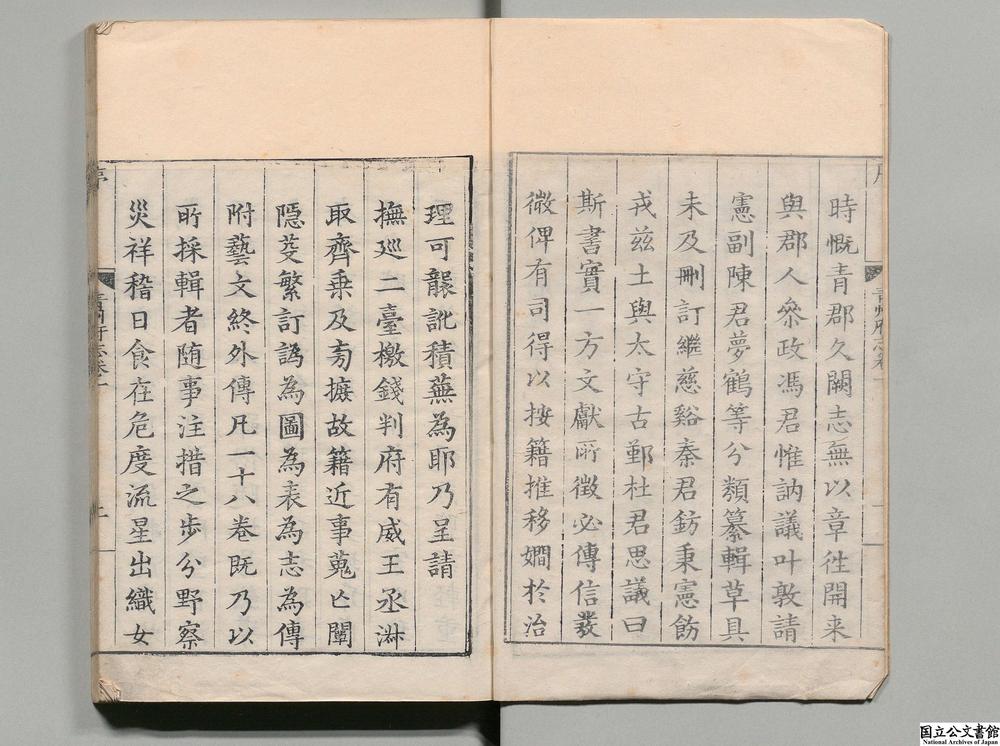 時慨青郡久闕志無以章徃開来
與郡人叅政馮君惟訥議叶敦請
憲副陳君夢鶴等分類纂輯草具
未及刪訂繼慈谿秦君鈁秉憲飭
戎茲土與太守古鄞杜君思議曰
斯書實一方文獻所徵必傳信叢
微俾有司得以按籍推移嫺於治
理可龒訛積蕪為耶乃呈請
撫廵二臺檄錢判府有威王丞淋
取齊乗及旁摭故籍近事蒐亡闡
隠芟繁訂譌為圖為表為志為傳
附藝文終外傳凡一十八巻既乃以
所採輯者随事注措之歩分野察
災祥稽日食在危度流星出織女
青州府志卷一
国立公文書館
National Archives of Japan